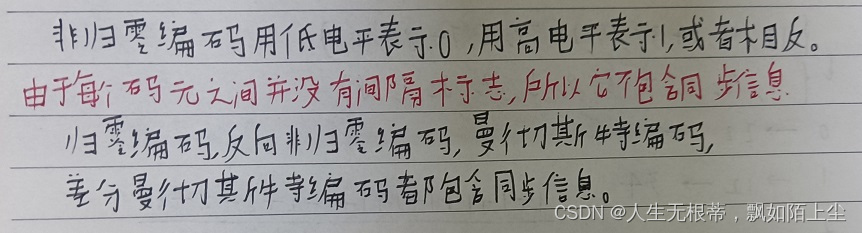 非归零编码用低电平表示0,用高电平表示1,或者相反。
由于每个码元之间并没有间隔标志,所以它不包含同步信息
归零编码,反向非归零编码,曼彻斯特编码,
差分曼彻斯特编码都包含同步信息。
CSDN @人生无根蒂，飘如陌上尘